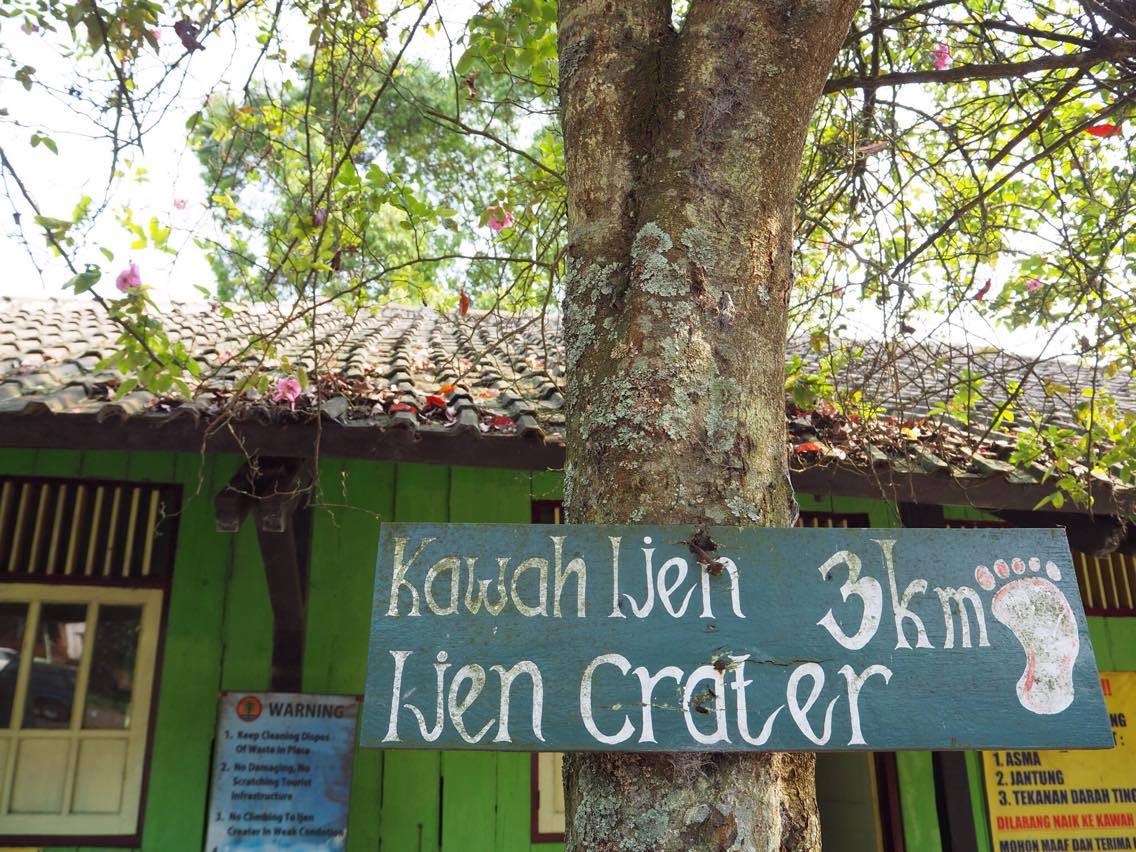 Kawah Ijen 3km
Ijen Crater
WARNING
1. Keep Cleaning Dispos
Of Waste In Place
2. No Damaging, No
Scratching Tourist
Infrastructure
3. No Climbing To Ijen
Crater In Weak Condation
1. ASMA
2. JANTUNG
3. TEKANAN DARAH TING
DILARANG NAIK KE KAWAH
MOHON MAAF DAN TERIMA